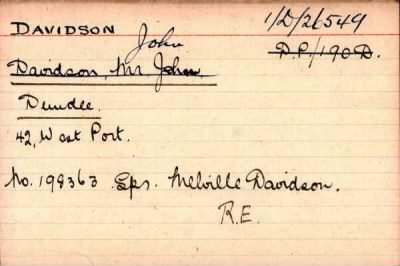 DAVIDSON John 1/D/2/6549
D.P./190D.
Davidson, Mr. John.
Dundee.
42, West Port.
No. 198363 Spr. Melville Davidson.
R.E.